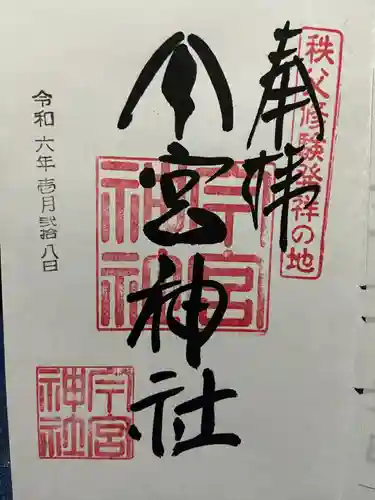 秩父修験発祥の地
奉拝
今宮神社
今宮神社
今宮神社
令和六年壱月弐拾八日